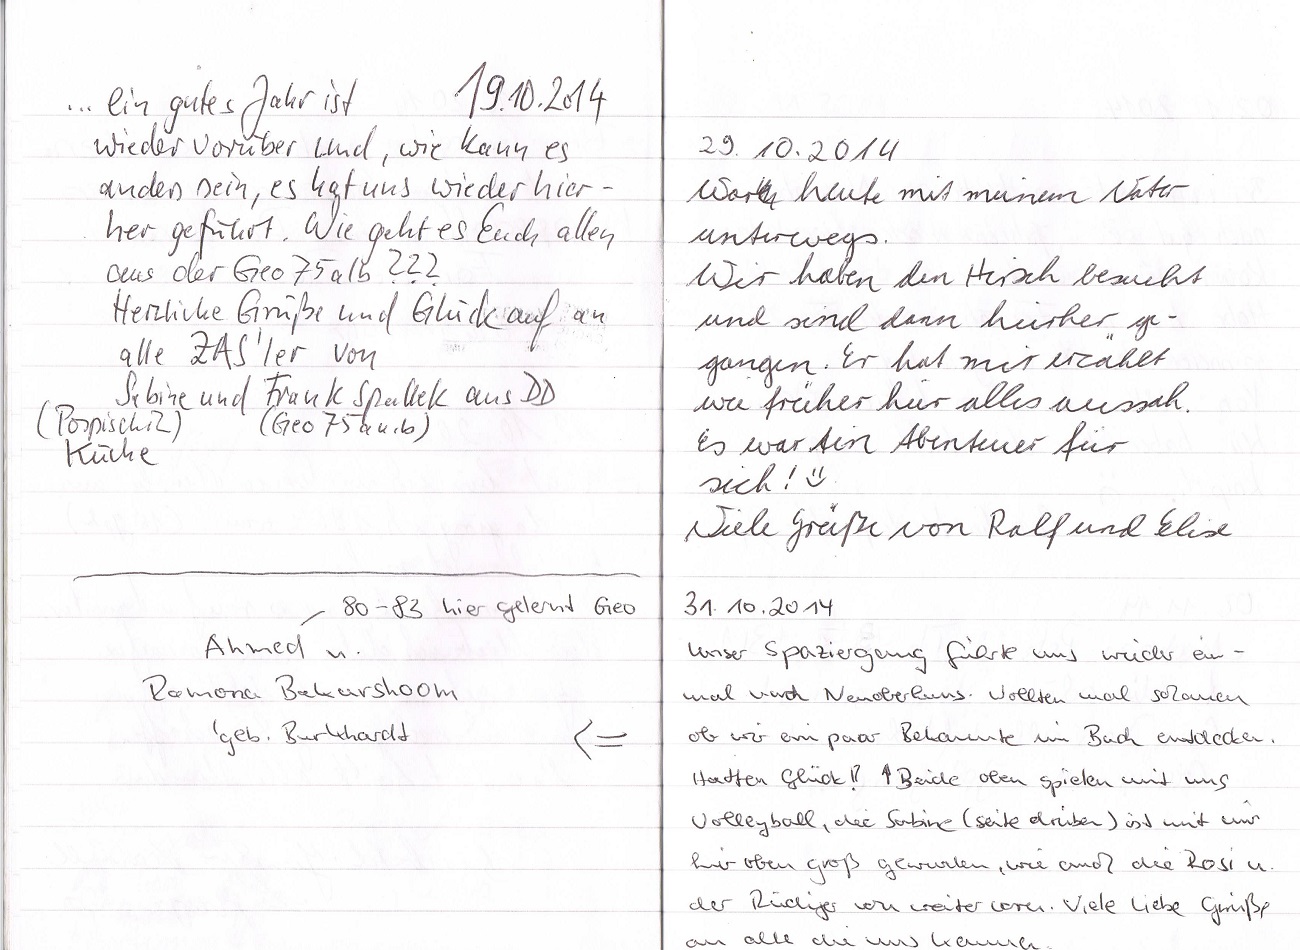 ... ein gutes Jahr ist 19.10.2014
wieder vorüber und, wie kann es
anders sein, es hat uns wieder hier-
her geführt. Wie geht es Euch allen
aus der Geo 75 a/b ???
Herzliche Grüße und Glück auf an
alle ZAS'ler von
Sabine und Frank Spallek aus DD
(Pospischil) (Geo 75 a u. b)
Küche
80-83 hier gelernt Geo
Ahmed u.
Ramona Bakarshoom
geb. Burkhardt <=
29.10.2014
War heute mit meinem Vater
unterwegs.
Wir haben den Hirsch besucht
und sind dann hierher ge-
gangen. Er hat mir erzählt
wie früher hier alles aussah.
Es war ein Abenteuer für
sich! ☺
Viele Grüße von Ralf und Elise
31.10.2014
Unser Spaziergang führte uns wieder ein-
mal nach Neuoberhaus. Wollten mal schauen
ob wir ein paar Bekannte im Buch entdecken.
Hatten Glück!! ↑ Beide oben spielen mit uns
Volleyball, die Sabine (seite drüben) ist mit mir
hier oben groß geworden, wie auch die Rosi u.
der Rüdiger von weiter vorn. Viele liebe Grüße
an alle die uns kennen.